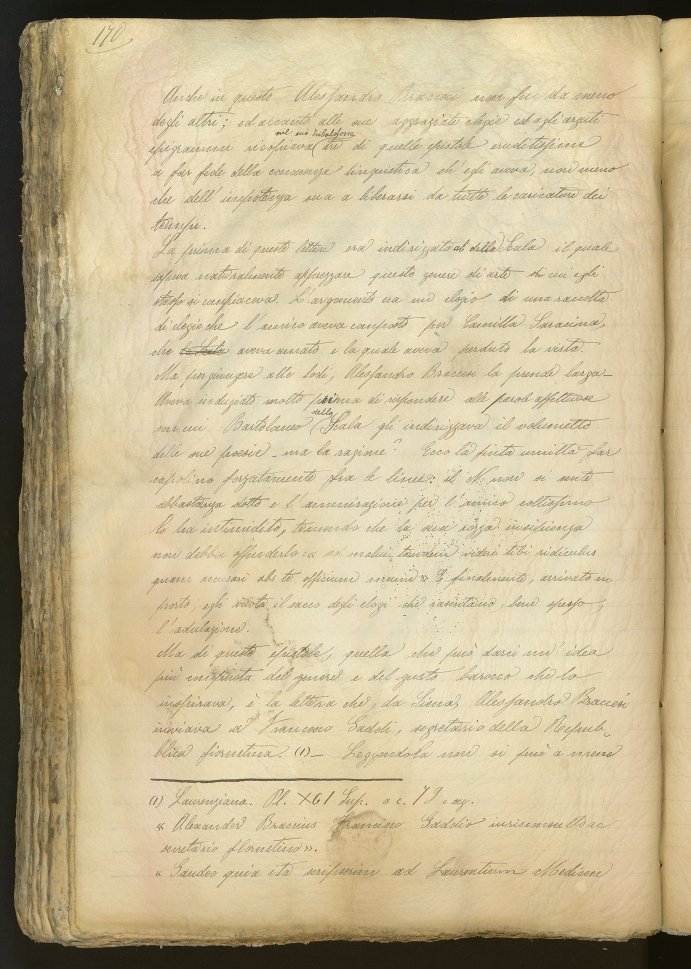 170
Anche in questo Alessandro Braccesi non fu da meno
degli altri; ed accanto alle sue aggraziate elegie ed agli arguti
nel suo zibaldone
epigrammi ricopiava tre di quelle epistole eruditissime
a far fede della conoscenza linguistica ch'egli aveva, non meno
che dell'impotenza sua a liberarsi da tutte le caricature dei
tempi.
La prima di queste lettere era indirizzata al della Scala il quale
sapeva naturalmente apprezzare questo genere di arte di cui egli
stesso si compiaceva. L'argomento era un elogio di una raccolta
di elegie che l'amico aveva composto per Camilla Saracina,
che la Scala aveva amato e la quale aveva perduto la vista.
Ma per giungere alle lodi, Alessandro Braccesi la prende larga.
Aveva indugiato molto prima di rispondere alle parole affettuose
della
con cui Bartolomeo Scala gli indirizzava il volumetto
delle sue poesie - ma la ragione? Ecco la finta umiltà far
capolino forzatamente fra le linee: il N. non si sente
abbastanza dotto e l'ammirazione per l'amico coltissimo
lo ha intimidito, temendo che la sua rozza insipienza
non debba offenderlo: a ad malui tandem videri tibi ridiculus
quam accusari abs te officium meum » E finalmente, arrivato in
porto, egli vuota il sacco degli elogi che rasentano, bene spesso,
l'adulazione.
Ma di queste epistole, quella che può darci un'idea
più compiuta del genere e del gusto barocco che lo
inspirava, è la lettera che, da Siena, Alessandro Braccesi
inviava a Francesco Gaddi, segretario della Repub-
blica fiorentina. (1) - Leggendola non si può a meno
(1) Laurenziana. Pl. X61 Sup. a c. 79 e seg.
« Alexander Braccius Francisco Gaddio iurisconsulto ac
secretario florentino ».
« Gaudeo quia ita scripserim ad Laurentium Medicem